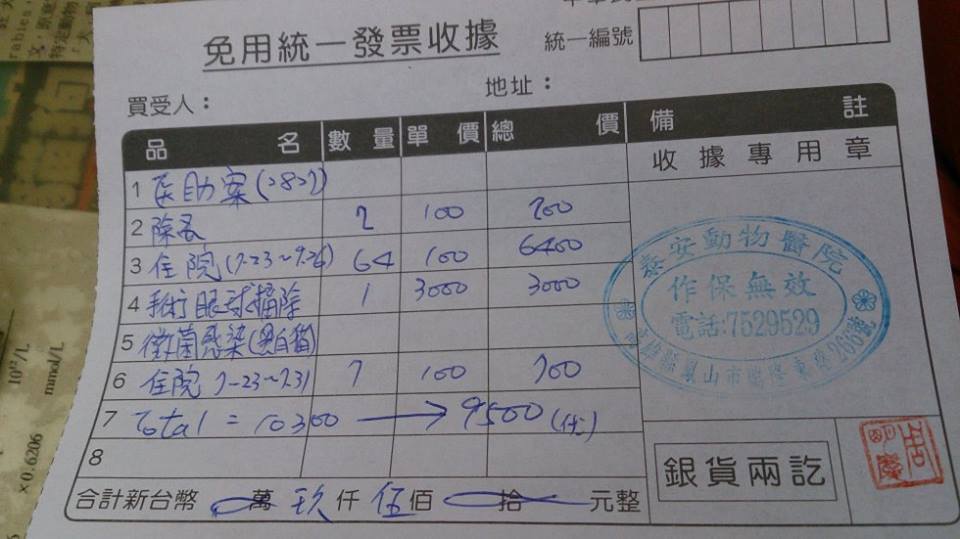 免用統一發票收據
統一編號
買受人：
地址：
品名 數量 單價 總價 備註
收據專用章
1 助案(2827)
2 除蚤 2 100 200
3 住院 64 100 6400
4 手術眼球摘除 1 3000 3000
5 黴菌感染(黑白貓)
6 住院 7-23~7.31 7 100 700
7 Total = 10300 → 9500
8
合計新台幣 萬 玖仟 伍佰 拾 元整
泰安動物醫院
作保無效
電話:7529529
鳳山市
銀貨兩訖
×0.6206
10¹²/L
mmol/L